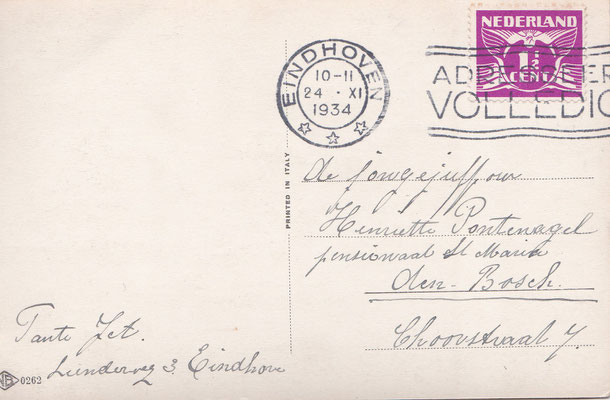 NEDERLAND
1½
CENT
EINDHOVEN
10-11
24 · XI
1934
ADRESSEER
VOLLEDIG
PRINTED IN ITALY
de jongejuffrouw
Henriette Pontenagel
pensionaat St Maria
den Bosch.
Choorstraat 7.
Tante Jet.
3 Eindhoven
0262